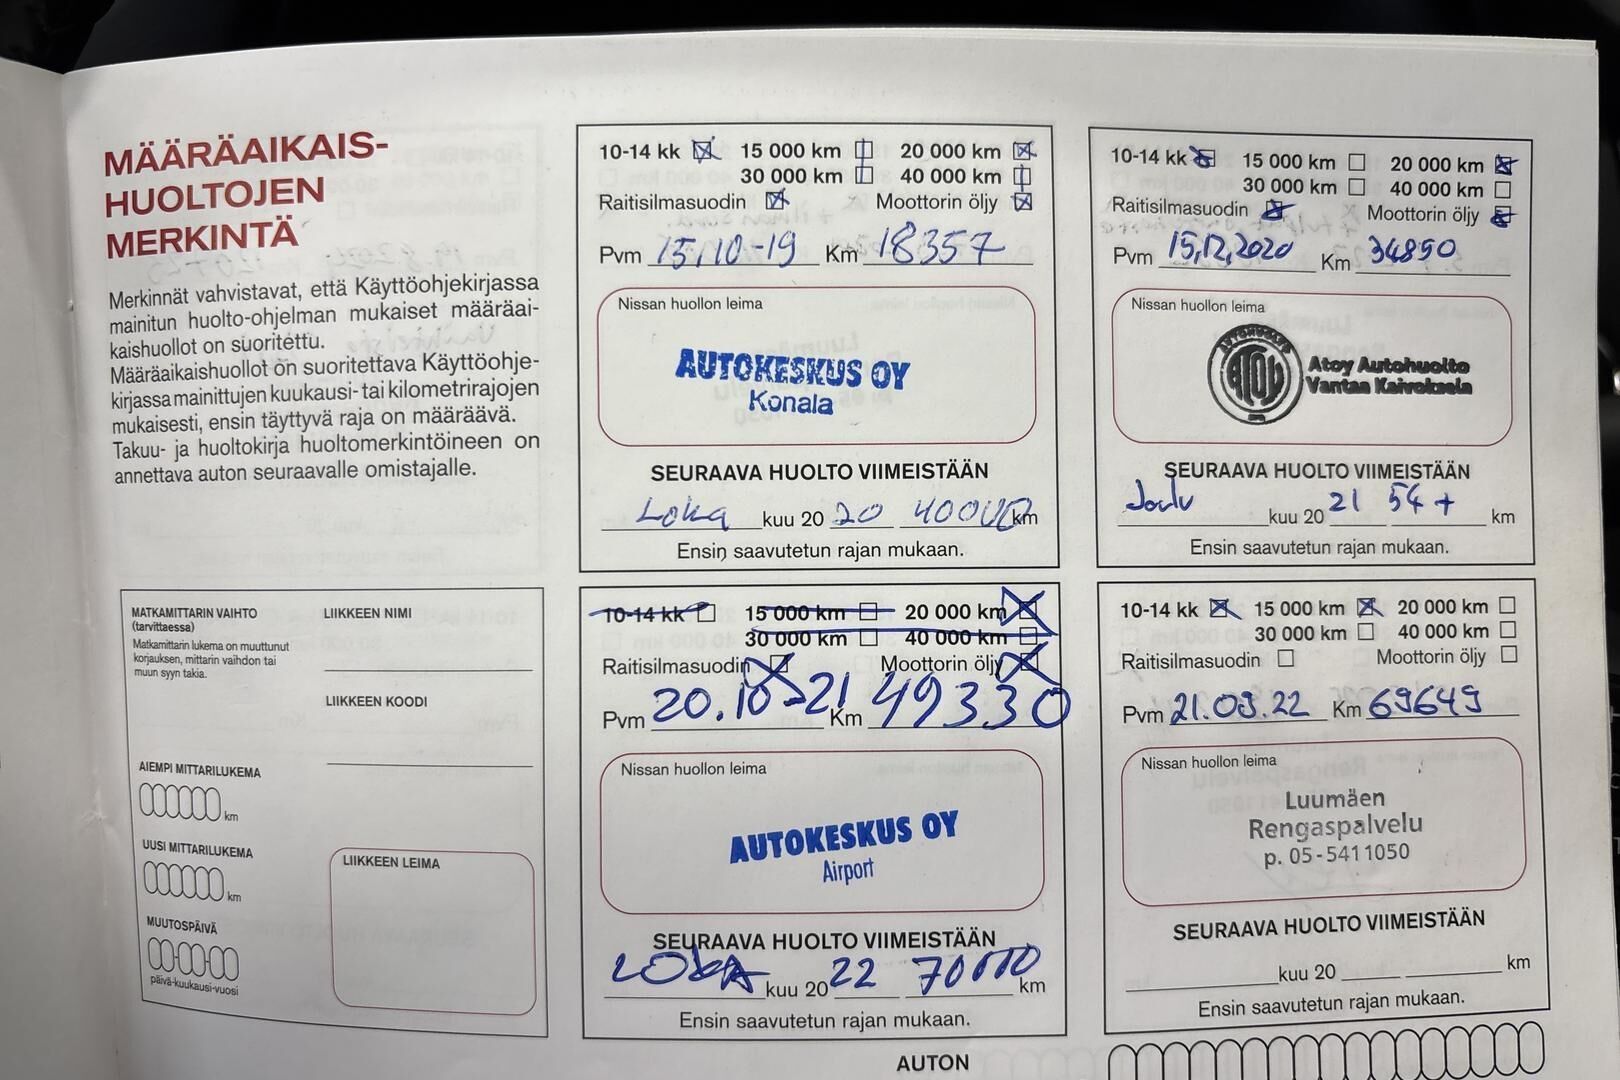 MÄÄRÄAIKAIS-
HUOLTOJEN
MERKINTÄ
Merkinnät vahvistavat, että Käyttöohjekirjassa
mainitun huolto-ohjelman mukaiset määräai-
kaishuollot on suoritettu.
Määräaikaishuollot on suoritettava Käyttöohje-
kirjassa mainittujen kuukausi- tai kilometrirajojen
mukaisesti, ensin täyttyvä raja on määräävä.
Takuu- ja huoltokirja huoltomerkintöineen on
annettava auton seuraavalle omistajalle.
MATKAMITTARIN VAIHTO
(tarvittaessa)
Matkamittarin lukema on muuttunut
korjauksen, mittarin vaihdon tai
muun syyn takia.
LIIKKEEN NIMI
LIIKKEEN KOODI
AIEMPI MITTARILUKEMA
km
UUSI MITTARILUKEMA
km
MUUTOSPÄIVÄ
päivä-kuukausi-vuosi
LIIKKEEN LEIMA
10-14 kk 15 000 km 20 000 km
30 000 km 40 000 km
Raitisilmasuodin Moottorin öljy
Pvm 15.10-19 Km 18357
Nissan huollon leima
AUTOKESKUS OY
Konala
SEURAAVA HUOLTO VIIMEISTÄÄN
Loka kuu 20 20 40000 km
Ensin saavutetun rajan mukaan.
10-14 kk 15 000 km 20 000 km
30 000 km 40 000 km
Raitisilmasuodin Moottorin öljy
Pvm 15.12.2020 Km 34890
Nissan huollon leima
ATOY
Atoy Autohuolto
Vantaa Kaivoksela
SEURAAVA HUOLTO VIIMEISTÄÄN
Joulu kuu 20 21 54 + km
Ensin saavutetun rajan mukaan.
10-14 kk 15 000 km 20 000 km
30 000 km 40 000 km
Raitisilmasuodin Moottorin öljy
Pvm 20.10-21 Km 49330
Nissan huollon leima
AUTOKESKUS OY
Airport
SEURAAVA HUOLTO VIIMEISTÄÄN
LOKA kuu 20 22 70000 km
Ensin saavutetun rajan mukaan.
10-14 kk 15 000 km 20 000 km
30 000 km 40 000 km
Raitisilmasuodin Moottorin öljy
Pvm 21.09.22 Km 69649
Nissan huollon leima
Luumäen
Rengaspalvelu
p. 05-5411050
SEURAAVA HUOLTO VIIMEISTÄÄN
kuu 20 km
Ensin saavutetun rajan mukaan.
AUTON